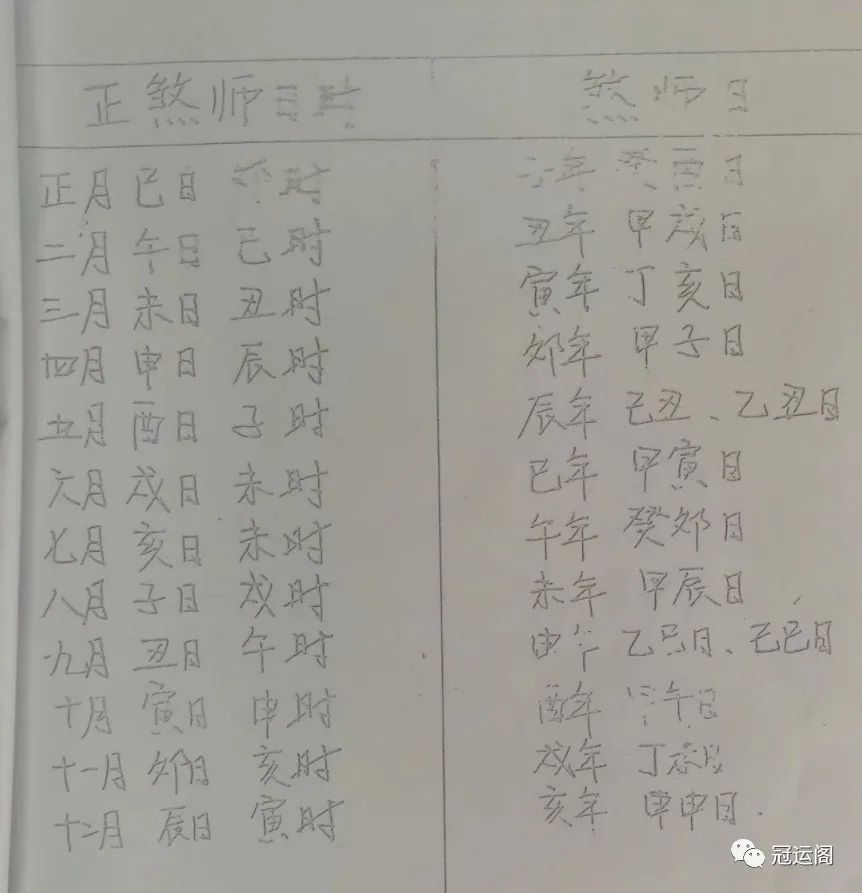 正煞师日时
正月 巳日 时
二月 午日 巳时
三月 未日 丑时
四月 申日 辰时
五月 酉日 子时
六月 戌日 未时
七月 亥日 未时
八月 子日 戌时
九月 丑日 午时
十月 寅日 申时
十一月 卯日 亥时
十二月 辰日 寅时
煞师日
年 癸酉日
丑年 甲戌日
寅年 丁亥日
卯年 甲子日
辰年 己丑、乙丑日
巳年 甲寅日
午年 癸卯日
未年 甲辰日
申年 乙巳日、己巳日
酉年 甲午日
戌年 丁未日
亥年 甲申日.
冠运阁